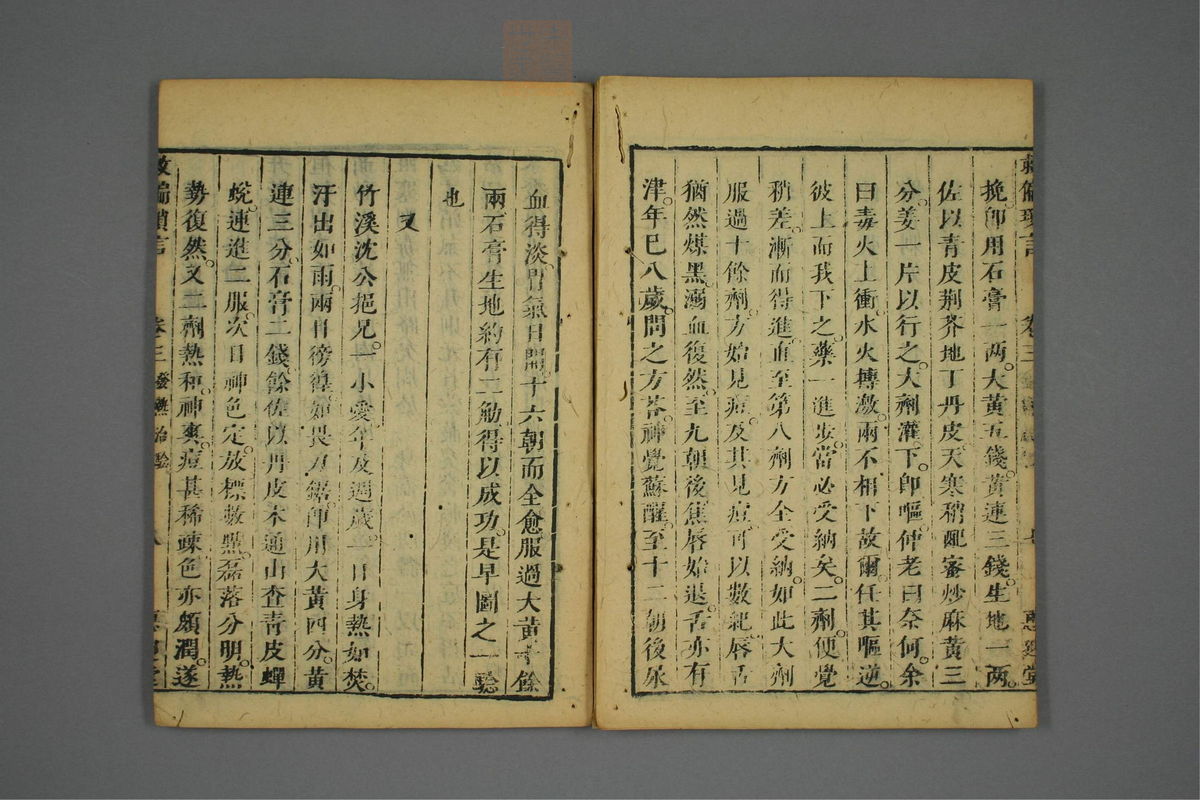 挽。卽用石膏一两。大黄五錢。黄連三錢。生地一两。
佐以青皮荆芥地丁丹皮。天寒稍配蜜炒麻黄三
分。姜一片以行之。大劑灌下。卽嘔。仲老曰奈何。余
曰毒火上衝。水火摶激。兩不相下故爾。任其嘔逆。
彼上而我下之。藥一進步。當必受納矣。二劑。便覺
稍差。漸而得進。直至第八劑方全受納。如此大劑
服過十餘劑。方始見痘。及其見痘可以數紀。唇舌
猶然煤黑。溺血復然。至九朝後。焦唇始退。舌亦有
津。年巳八歲。問之方荅。神覺蘇醒。至十二朝後尿
血得淡。胃氣日開。十六朝而全愈。服過大黄十餘
兩。石膏生地約有二觔。得以成功。是早圖之一驗
也
又
竹溪沈公挹兄。一小愛。年及週歲。一日身熱如焚。
汗出如雨。兩目徬徨。如畏刀鋸。卽用大黄四分。黄
連三分。石膏二錢。餘佐以丹皮木通山查青皮蟬
蛻。連進二服。次日神色定。放標數點。磊落分明。熱
勢復然。又二劑熱和。神爽。痘甚稀踈。色亦頗潤。遂
救偏瑣言 卷三 發藥治驗 八